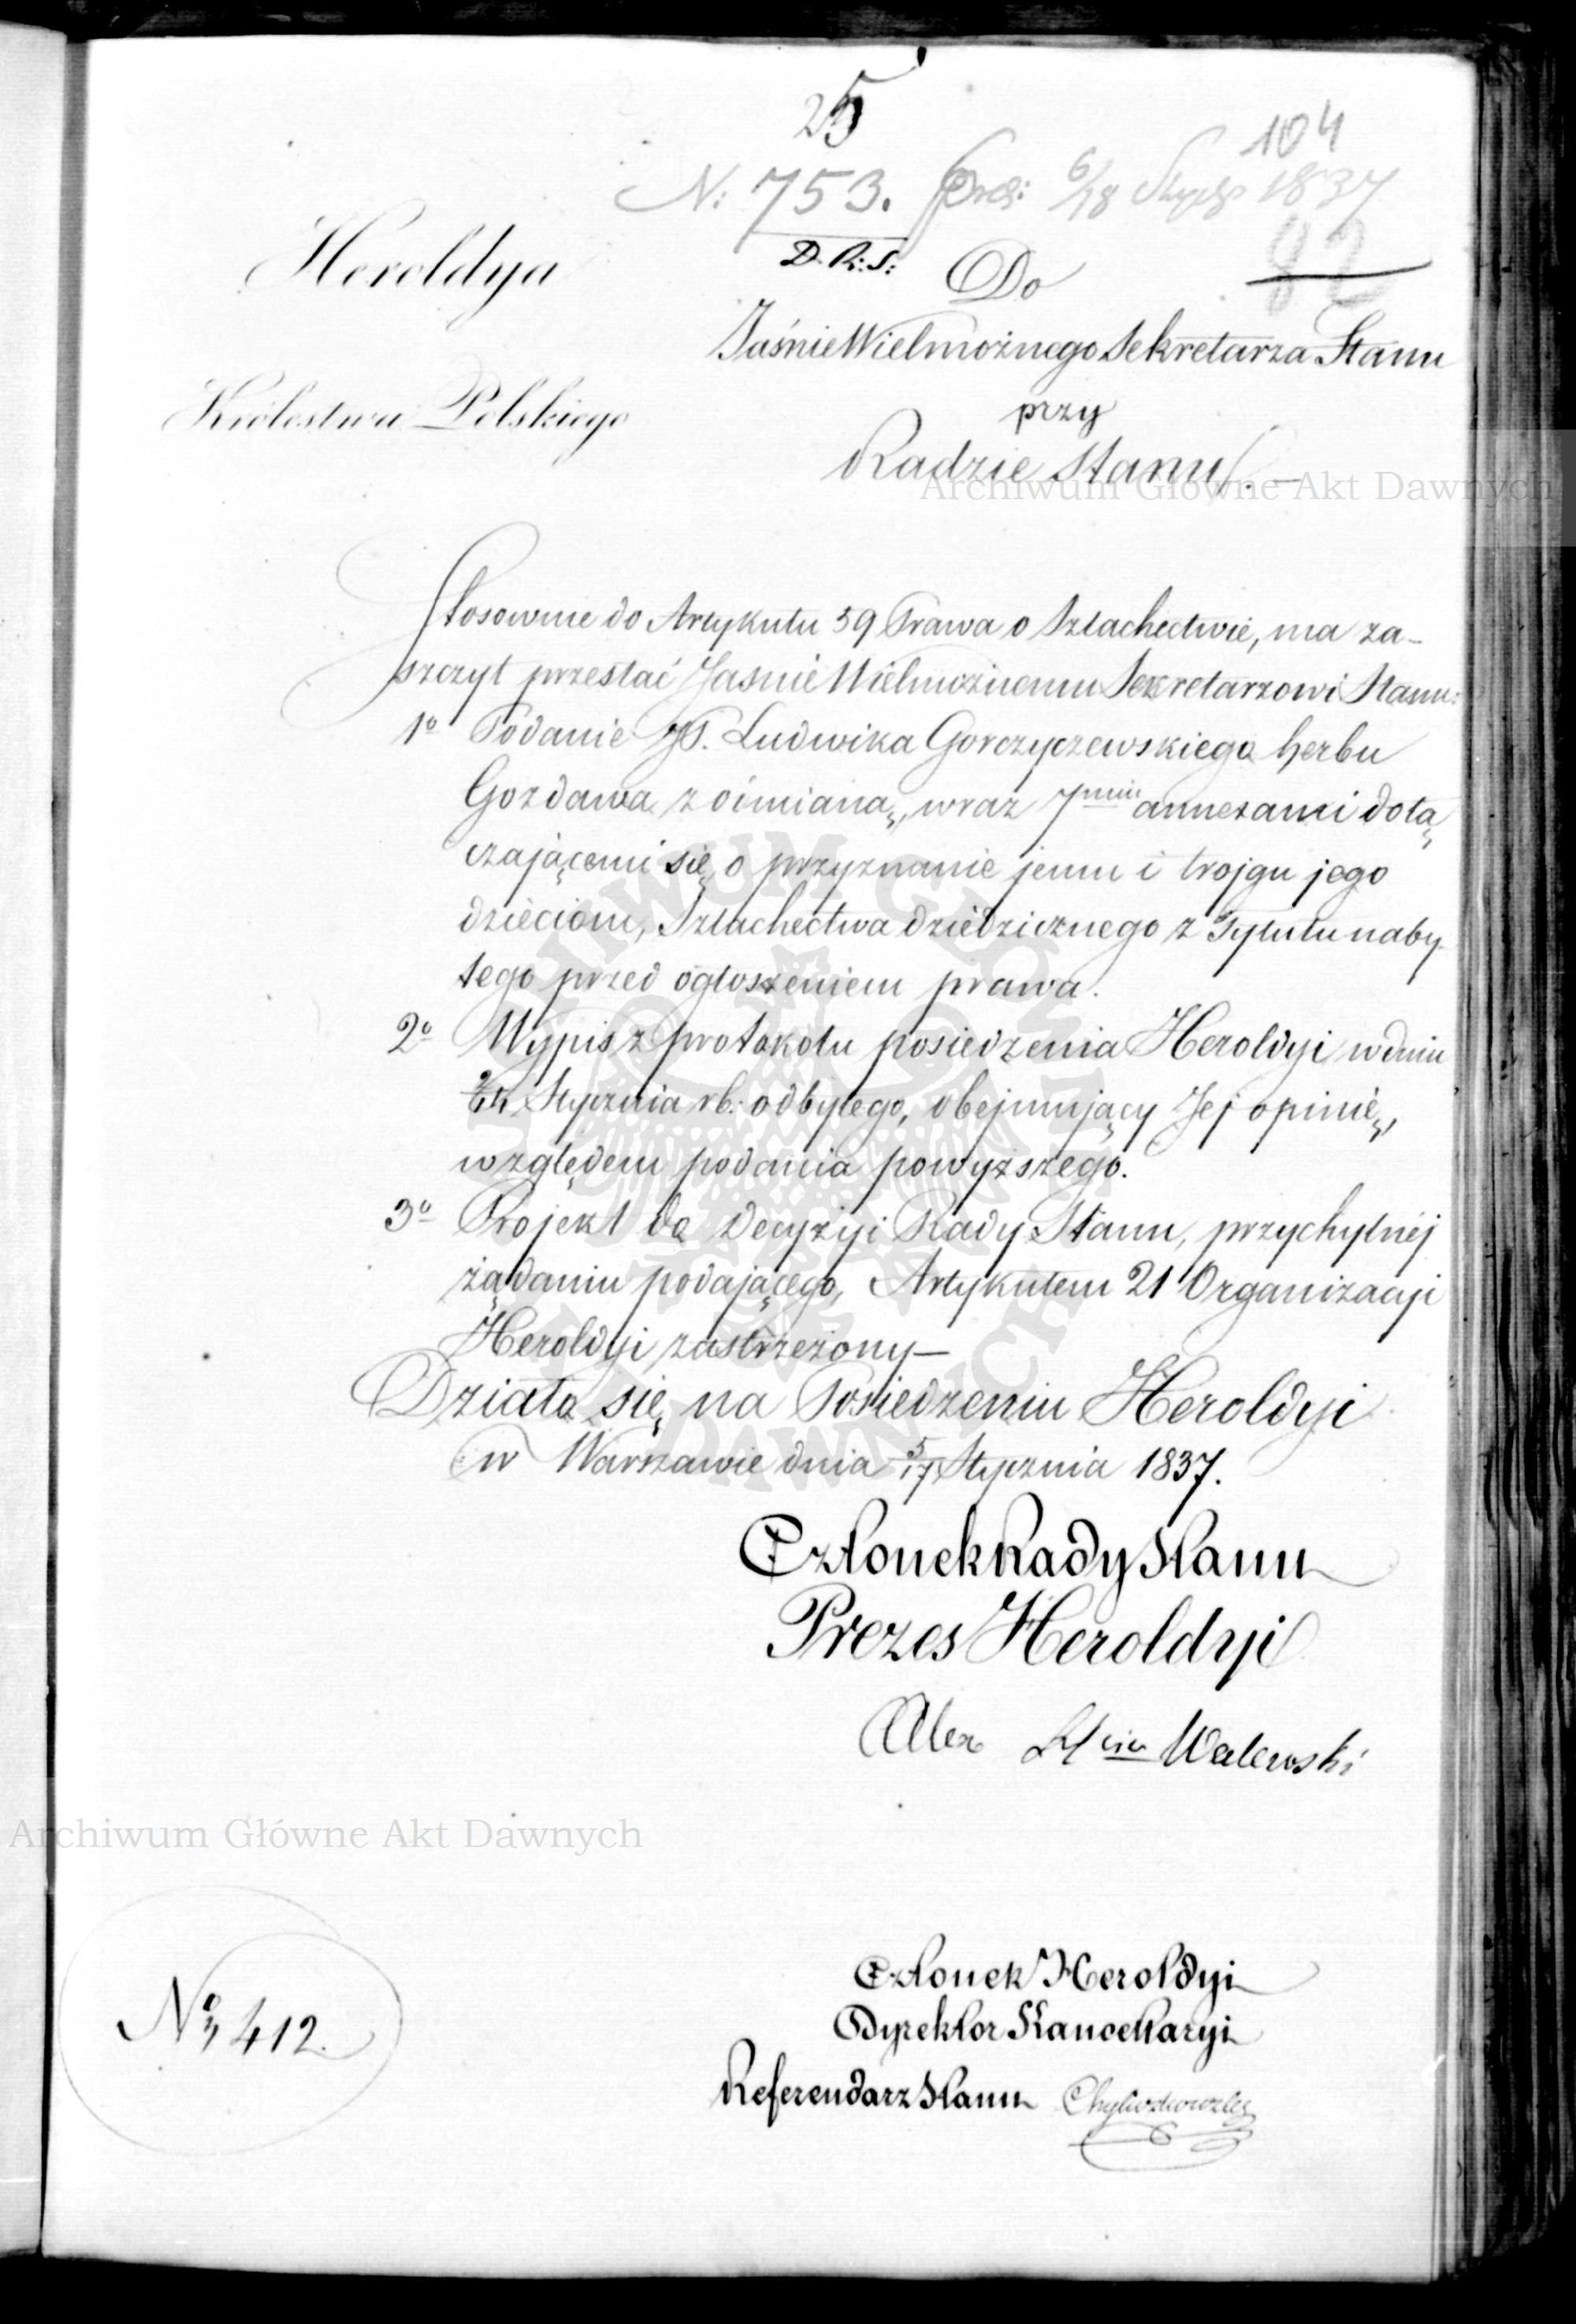 25
104
N: 753. 6/18 1837
D. R: S:
82
Heroldya
Królestwa Polskiego
Do
JaśnieWielmożnego Sekretarza Stanu
przy
Radzie Stanu. —
Archiwum Główne Akt Dawnych
Stosownie do Artykułu 59 Prawa o Szlachectwie, ma za-
szczyt przesłać JaśnieWielmożnemu Sekretarzowi Stanu:
1º Podanie JP. Ludwika Gorczyczewskiego herbu
Gozdawa z ódmianą, wraz 7miu annexami dołą
czającemi się, o przyznanie jemu i trojgu jego
dzieciom, Szlachectwa dziedzicznego z Tytułu naby-
tego przed ogłoszeniem prawa.
2º Wypis z protokołu posiedzenia Heroldyi w dniu
2/14 Stycznia rb: odbytego, obejmujący Jej opinię,
względem podania powyższego.
3º Projekt do Decyzyi Rady Stanu, przychylnéj
żądaniu podającego, Artykułem 21 Organizacyi
Heroldyi zastrzeżony—
Działo się na Posiedzeniu Heroldyi
w Warszawie dnia 5/17 Stycznia 1837.
Członek Rady Stanu
Prezes Heroldyi
Alex Walewski
Archiwum Główne Akt Dawnych
Członek Heroldyi
Dyrektor Kancellaryi
Referendarz Stanu
Nº 412.
ARCHIWUM GŁÓWNE AKT DAWNYCH